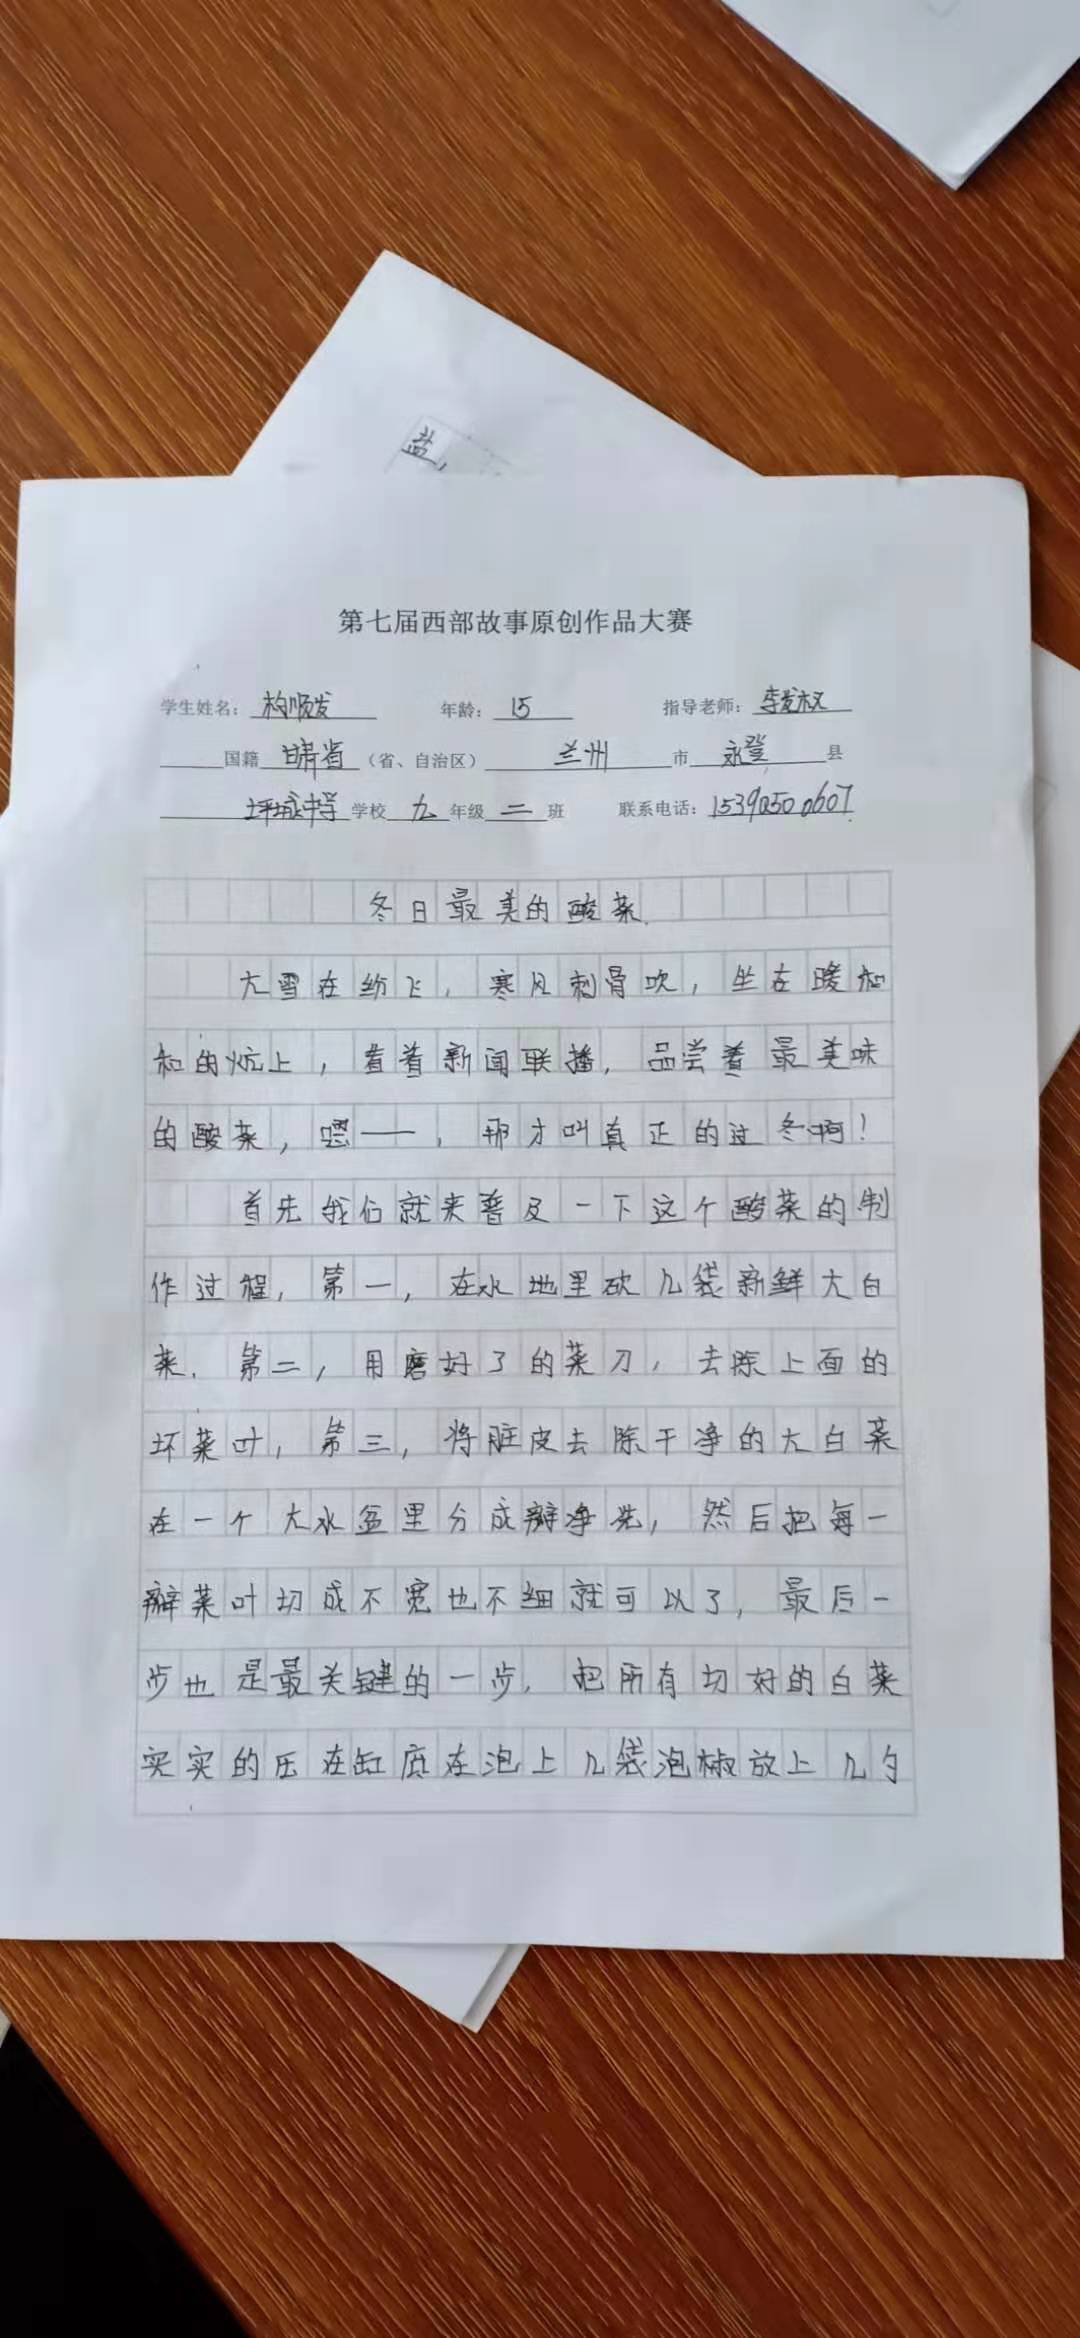 盐,
第七届西部故事原创作品大赛
学生姓名: 构顺发 年龄: 15 指导老师: 李发权
国籍 甘肃省 (省、自治区) 兰州 市 永登 县
坪城中学 学校 九 年级 二 班 联系电话: 15390500607
冬日最美的酸菜.
大雪在纷飞,寒风刺骨吹,坐在暖和
和的炕上,看着新闻联播,品尝着最美味
的酸菜,嗯——,那才叫真正的过冬啊!
首先我们就来普及一下这个酸菜的制
作过程,第一,在水地里砍几袋新鲜大白
菜.第二,用磨好了的菜刀,去除上面的
坏菜叶,第三,将脏皮去除干净的大白菜
在一个大水盆里分成瓣净洗,然后把每一
瓣菜叶切成不宽也不细就可以了,最后一
步也是最关键的一步,把所有切好的白菜
实实的压在缸底在泡上几袋泡椒放上几勺